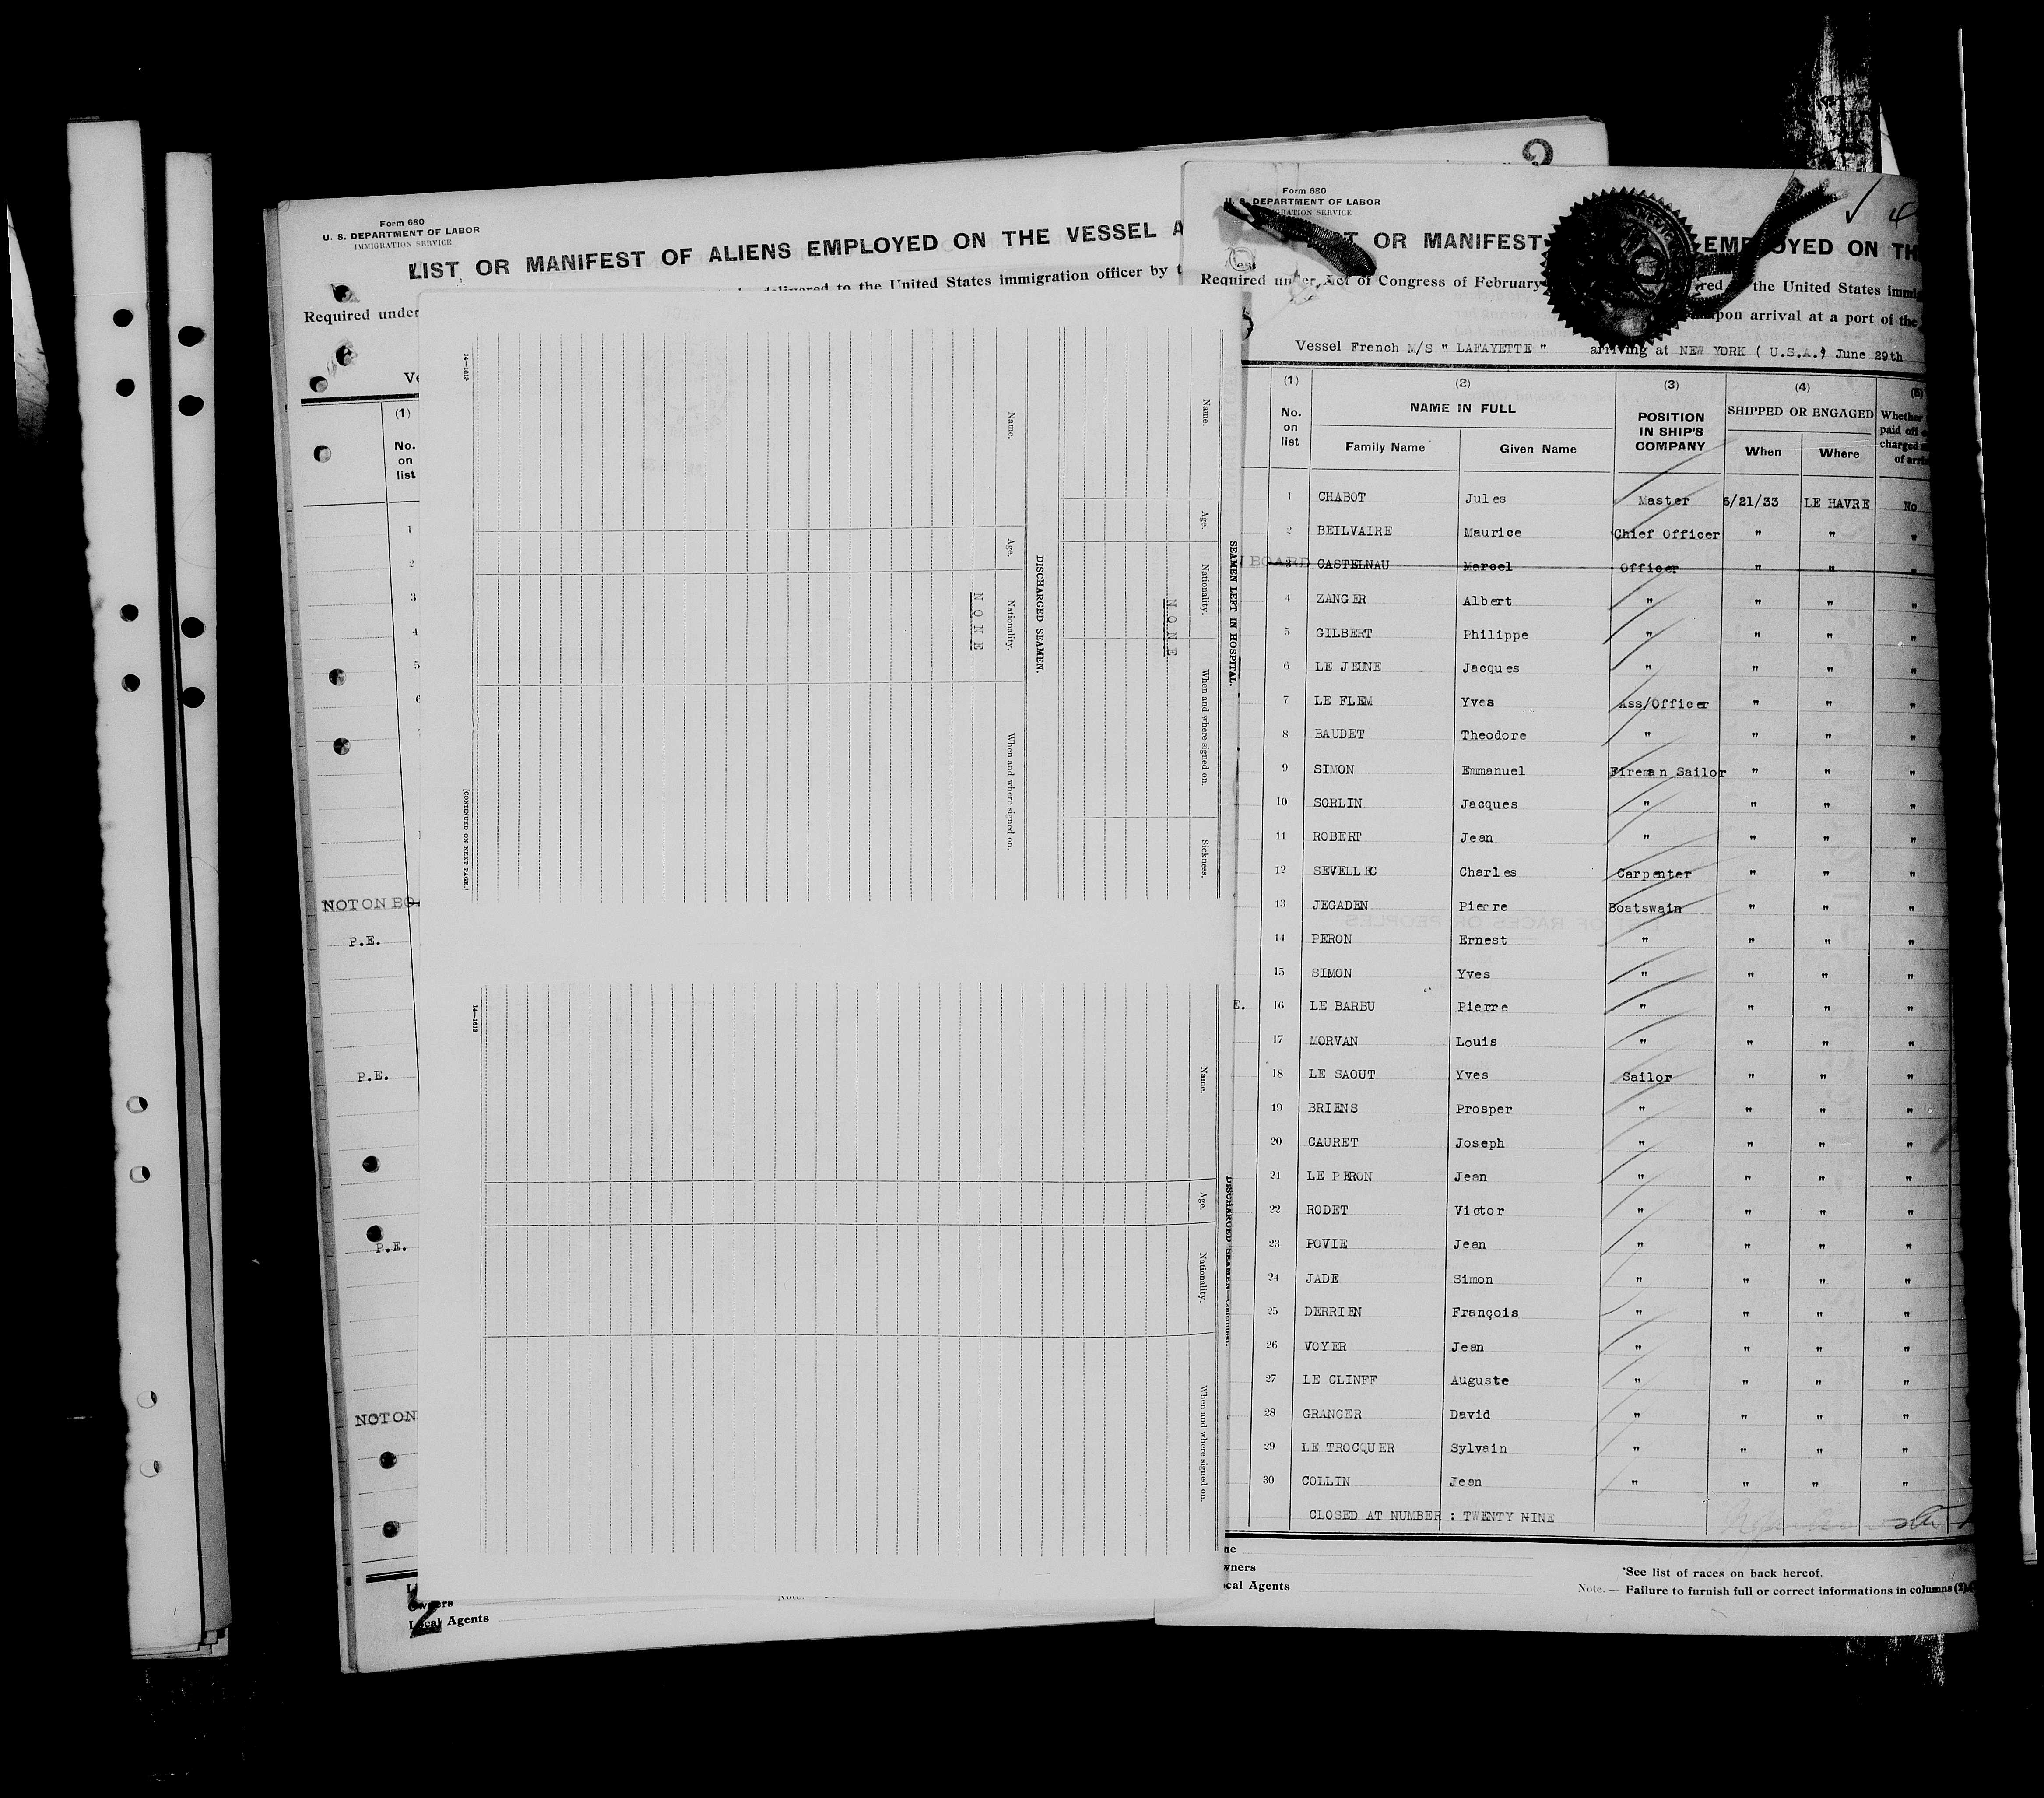 Form 680
U. S. DEPARTMENT OF LABOR
IMMIGRATION SERVICE
LIST OR MANIFEST OF ALIENS EMPLOYED ON THE VESSEL A
delivered to the United States immigration officer by t
Required under
(1)
No.
on
list
1
2
3
4
5
NOT ON BO
P.E.
P.E.
P.E.
NOT ON
Owners
Local Agents
14—1613
Name.
Age.
Nationality.
When and where signed on.
Sickness.
SEAMEN LEFT IN HOSPITAL.
NONE
DISCHARGED SEAMEN.
Name.
Age.
Nationality.
When and where signed on.
NONE
[CONTINUED ON NEXT PAGE.]
14—1613
DISCHARGED SEAMEN—Continued.
Name.
Age.
Nationality.
When and where signed on.
Form 680
U. S. DEPARTMENT OF LABOR
IMMIGRATION SERVICE
LIST OR MANIFEST EMPLOYED ON TH
Required under Act of Congress of February red the United States immi
upon arrival at a port of the
Vessel French M/S " LAFAYETTE " arriving at NEW YORK ( U.S.A.) June 29th
(1) (2) (3) (4) (5)
No. on list NAME IN FULL POSITION IN SHIP'S COMPANY SHIPPED OR ENGAGED Whether
paid off
charged
of arri
Family Name Given Name When Where
1 CHABOT Jules Master 6/21/33 LE HAVRE No
2 BEILVAIRE Maurice Chief Officer " " "
BOARD 3 CASTELNAU Marcel Officer " " "
4 ZANGER Albert " " " "
5 GILBERT Philippe " " " "
6 LE JEUNE Jacques " " " "
7 LE FLEM Yves Ass/Officer " " "
8 BAUDET Theodore " " " "
9 SIMON Emmanuel Fireman Sailor " " "
10 SORLIN Jacques " " " "
11 ROBERT Jean " " " "
12 SEVELLEC Charles Carpenter " " "
13 JEGADEN Pierre Boatswain " " "
14 PERON Ernest " " " "
15 SIMON Yves " " " "
E. 16 LE BARBU Pierre " " " "
17 MORVAN Louis " " " "
18 LE SAOUT Yves Sailor " " "
19 BRIENS Prosper " " " "
20 CAURET Joseph " " " "
21 LE PERON Jean " " " "
22 RODET Victor " " " "
23 POVIE Jean " " " "
24 JADE Simon " " " "
25 DERRIEN François " " " "
26 VOYER Jean " " " "
27 LE CLINFF Auguste " " " "
28 GRANGER David " " " "
29 LE TROCQUER Sylvain " " " "
30 COLLIN Jean " " " "
CLOSED AT NUMBER : TWENTY NINE
ne
wners
ocal Agents
*See list of races on back hereof.
Note.— Failure to furnish full or correct informations in columns (2),